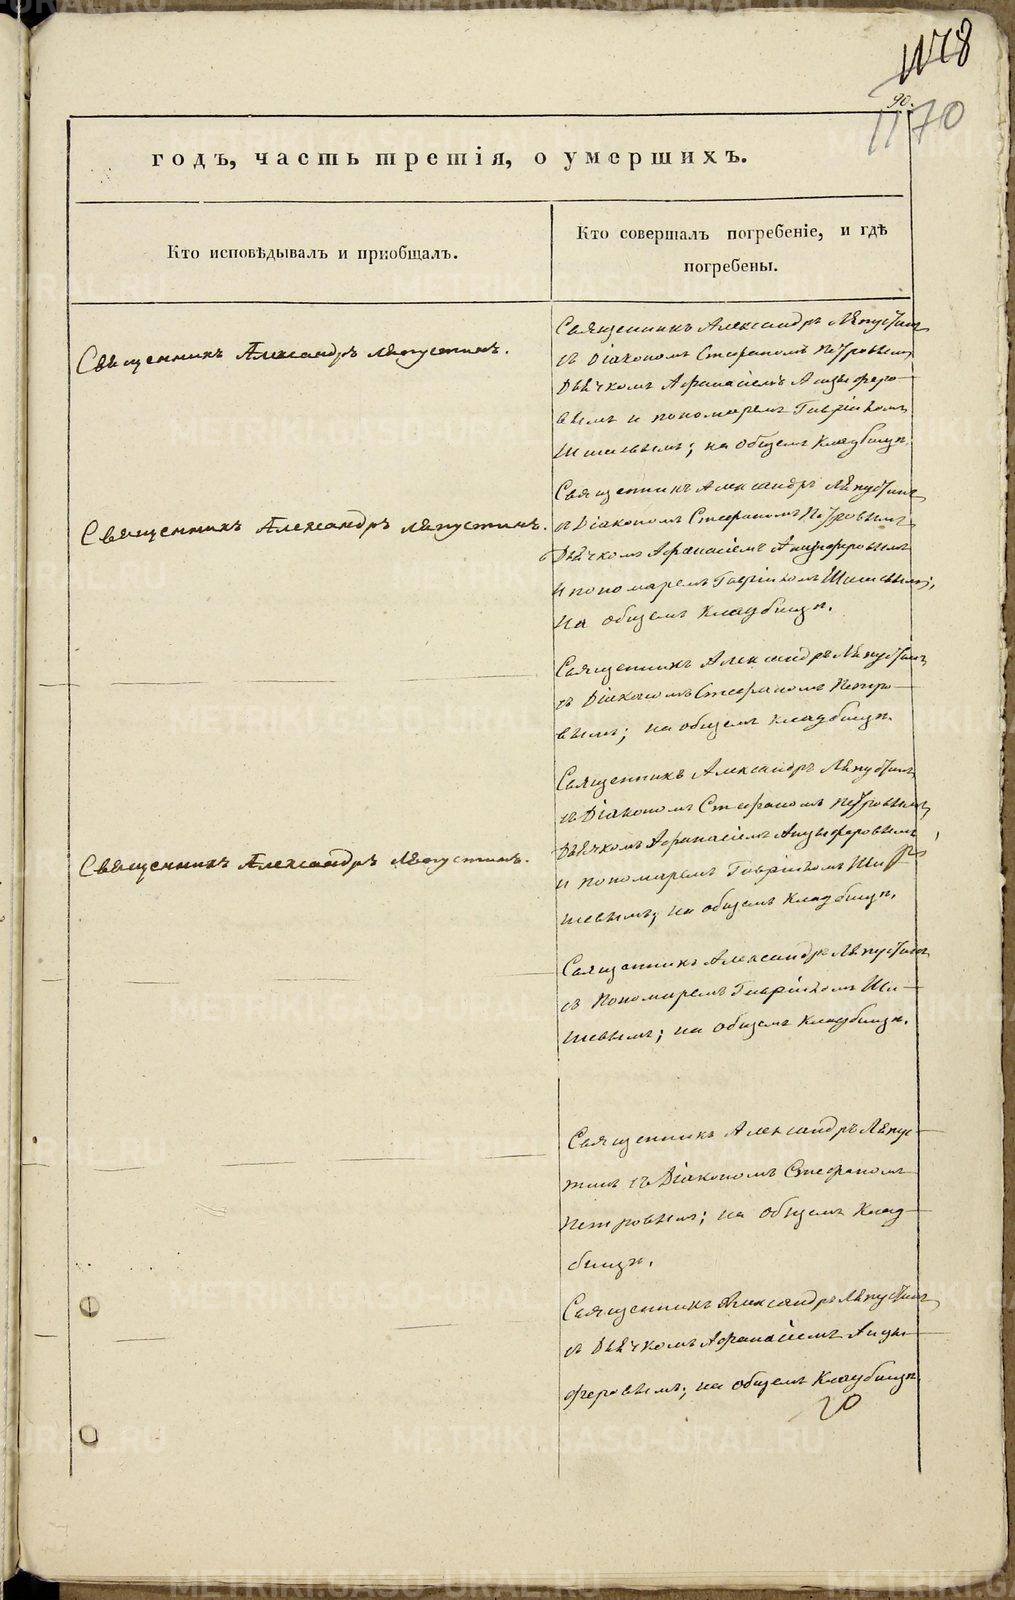 1170
90.
годъ, часть третія, о умершихъ.
Кто исповѣдывалъ и пріобщалъ.
Кто совершалъ погребеніе, и гдѣ
погребены.
Священникъ Александръ Лѣпустинъ.
Священникъ Александръ Лѣпустинъ
съ Діакономъ Стефаномъ Петровымъ,
Дьячкомъ Афанасіемъ Анцыферо-
вымъ и пономаремъ Гавріиломъ
Шишевымъ; на общемъ кладбищѣ.
Священникъ Александръ Лѣпустинъ.
Священникъ Александръ Лѣпустинъ
съ Діакономъ Стефаномъ Петровымъ,
Дьячкомъ Афанасіемъ Анцыферовымъ
и пономаремъ Гавріиломъ Шишевымъ;
на общемъ кладбищѣ.
Священникъ Александръ Лѣпустинъ
съ Діакономъ Стефаномъ Петро-
вымъ; на общемъ кладбищѣ.
Священникъ Александръ Лѣпустинъ.
Священникъ Александръ Лѣпустинъ
съ Діакономъ Стефаномъ Петровымъ,
Дьячкомъ Афанасіемъ Анцыферовымъ
и пономаремъ Гавріиломъ Ши-
шевымъ; на общемъ кладбищѣ.
Священникъ Александръ Лѣпустинъ
съ Пономаремъ Гавріиломъ Ши-
шевымъ; на общемъ кладбищѣ.
Священникъ Александръ Лѣпус-
тинъ съ Діакономъ Стефаномъ
Петровымъ; на общемъ клад-
бищѣ.
Священникъ Александръ Лѣпустинъ
съ Дьячкомъ Афанасіемъ Анцы-
феровымъ; на общемъ кладбищѣ.
20
METRIKI.GASO-URAL.RU